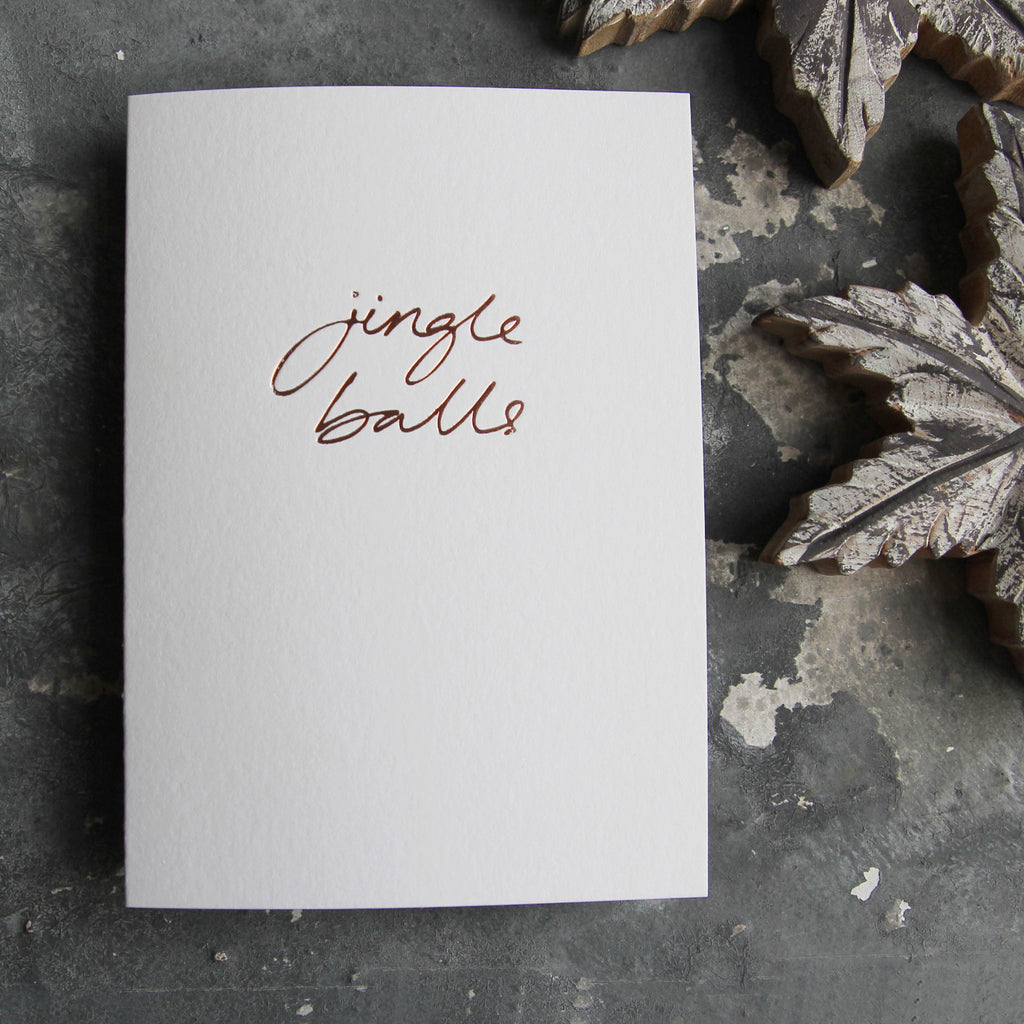 jingle
balls